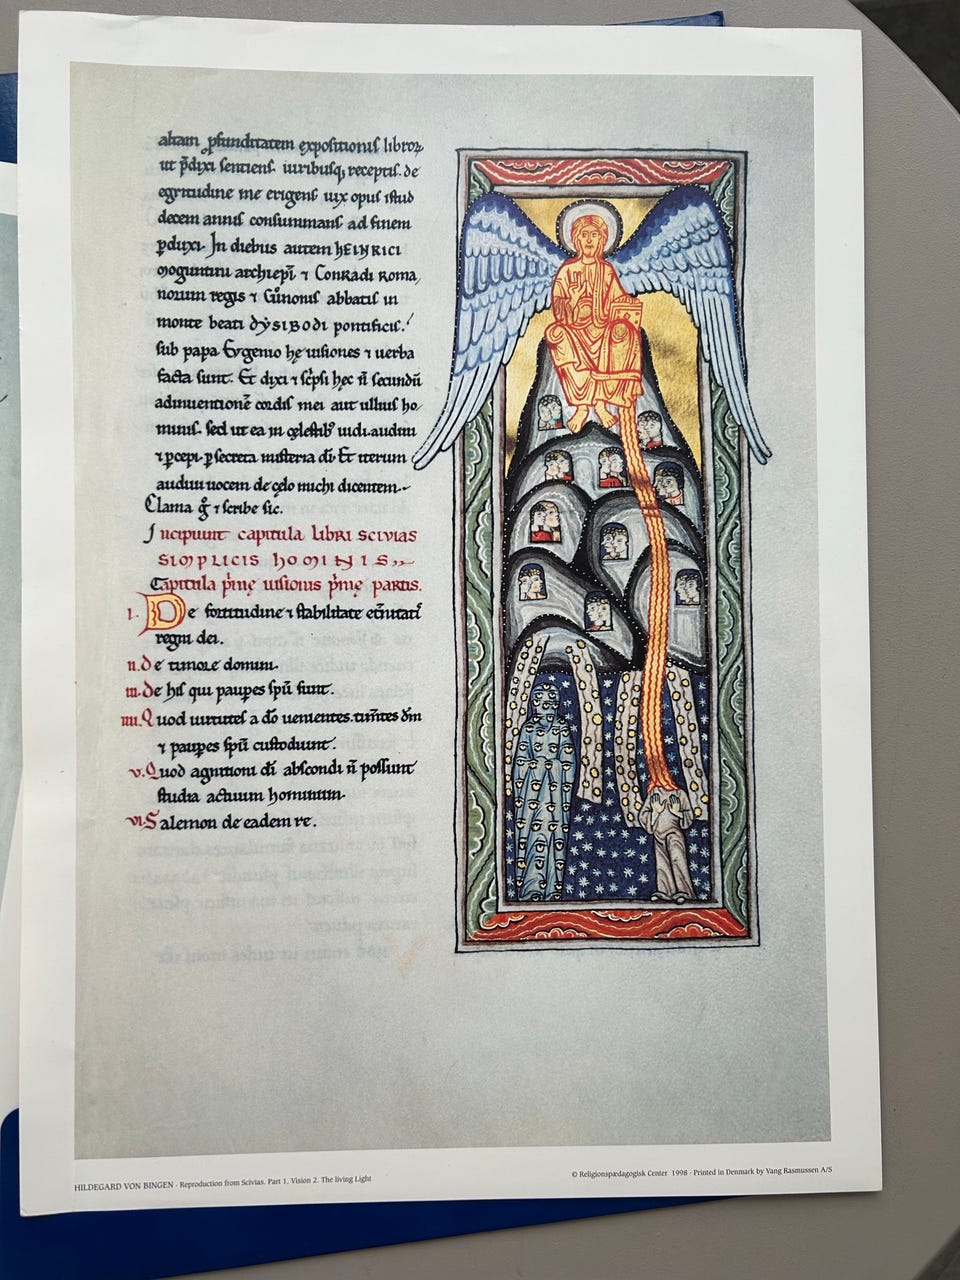 altam p̱funditatem expositionis libroꝝ
ut p̄dixi sentiens. uiribusq; receptis. de
egritudine me erigens uix opus istud
decem annis consummans ad finem
ꝑduxi. In diebus autem HEINRICI
moguntini archiep̄i ⁊ Conradi Roma
norum regis ⁊ Cůnonis abbatis in
monte beati dẏSIBODI pontificis.
sub papa Eugenio hę uisiones ⁊ uerba
facta sunt. Et dixi ⁊ sc̄psi hęc n̄ secundū
adinuentionē cordis mei aut ullius ho
minis. sed ut ea in cęlestibꝰ uidi. audiui
⁊ ꝑcepi. ꝑ secreta misteria dī. Et iterum
audiui uocem de cęlo michi dicentem.
Clama g̊ ⁊ scribe sic.
Incipiunt capitula libri scivias
simplicis hominis.
Capitula p̄mę uisionis p̄mę partis.
i. De fortitudine ⁊ stabilitate et̄nitatis
regni dei.
ii. De timore domini.
iii. De his qui paupes spū sunt.
iiii. Quod uirtutes a dō uenientes. tim̄tes dm̄
⁊ paupes spū custodiunt.
v. Quod agnitioni dī abscondi n̄ possunt
studia actuum hominum.
vi. Salemon de eadem re.
HILDEGARD VON BINGEN · Reproduction from Scivias. Part 1, Vision 2. The living Light
© Religionspædagogisk Center 1998 · Printed in Denmark by Vang Rasmussen A/S